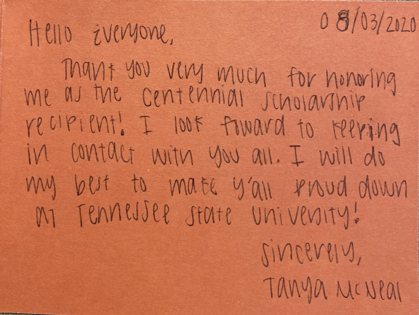 08/03/2020
Hello Everyone,
Thank you very much for honoring
me as the centennial scholarship
recipient! I look foward to keeping
in contact with you all. I will do
my best to make y'all proud down
at Tennessee State University!
Sincerely,
Tanya McNeal